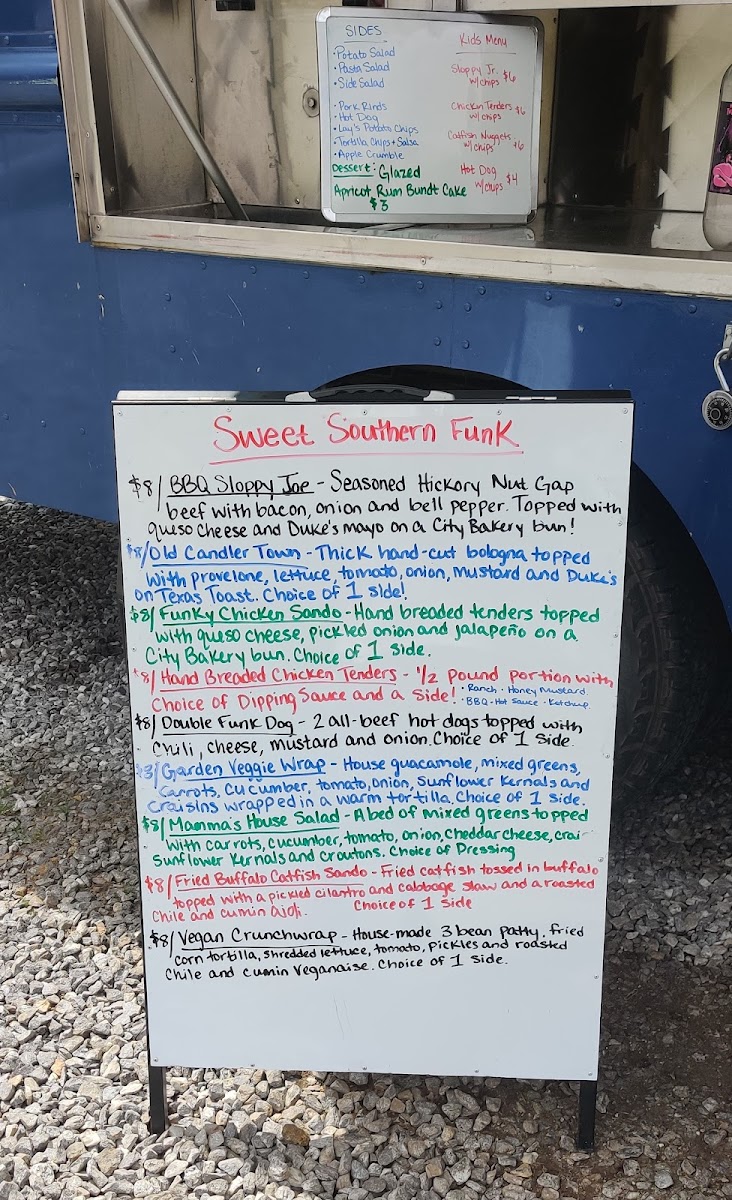 SIDES
• Potato Salad
• Pasta Salad
• Side Salad
• Pork Rinds
• Hot Dog
• Lay's Potato Chips
• Tortilla Chips + Salsa
• Apple Crumble
Dessert: Glazed
Apricot Rum Bundt Cake
$3
Kids Menu
Sloppy Jr. $6
w/chips
Chicken Tenders $6
w/chips
Catfish Nuggets $6
w/chips
Hot Dog $4
w/chips
Sweet Southern Funk
$8/ BBQ Sloppy Joe - Seasoned Hickory Nut Gap
beef with bacon, onion and bell pepper. Topped with
queso cheese and Duke's mayo on a City Bakery bun!
$8/ Old Candler Town - Thick hand-cut bologna topped
with provelone, lettuce, tomato, onion, mustard and Duke's
on Texas Toast. Choice of 1 side!
$8/ Funky Chicken Sando - Hand breaded tenders topped
with queso cheese, pickled onion and jalapeño on a
City Bakery bun. Choice of 1 side.
$8/ Hand Breaded Chicken Tenders - 1/2 pound portion with
Choice of Dipping Sauce and a Side! • Ranch • Honey Mustard
• BBQ • Hot Sauce • Ketchup
$8/ Double Funk Dog - 2 all-beef hot dogs topped with
Chili, cheese, mustard and onion. Choice of 1 side.
Garden Veggie Wrap - House guacamole, mixed greens,
Carrots, cucumber, tomato, onion, Sunflower Kernals and
Craisins wrapped in a warm tortilla. Choice of 1 side.
$8/ Mamma's House Salad - A bed of mixed greens topped
with carrots, cucumber, tomato, onion, cheddar cheese, crai-
Sunflower Kernals and croutons. Choice of Dressing
$8/ Fried Buffalo Catfish Sando - Fried catfish tossed in buffalo
topped with a pickled cilantro and cabbage slaw and a roasted
Chile and cumin ajoli. Choice of 1 side
$8/ Vegan Crunchwrap - House-made 3 bean patty, fried
corn tortilla, shredded lettuce, tomato, pickles and roasted
Chile and cumin Veganaise. Choice of 1 side.